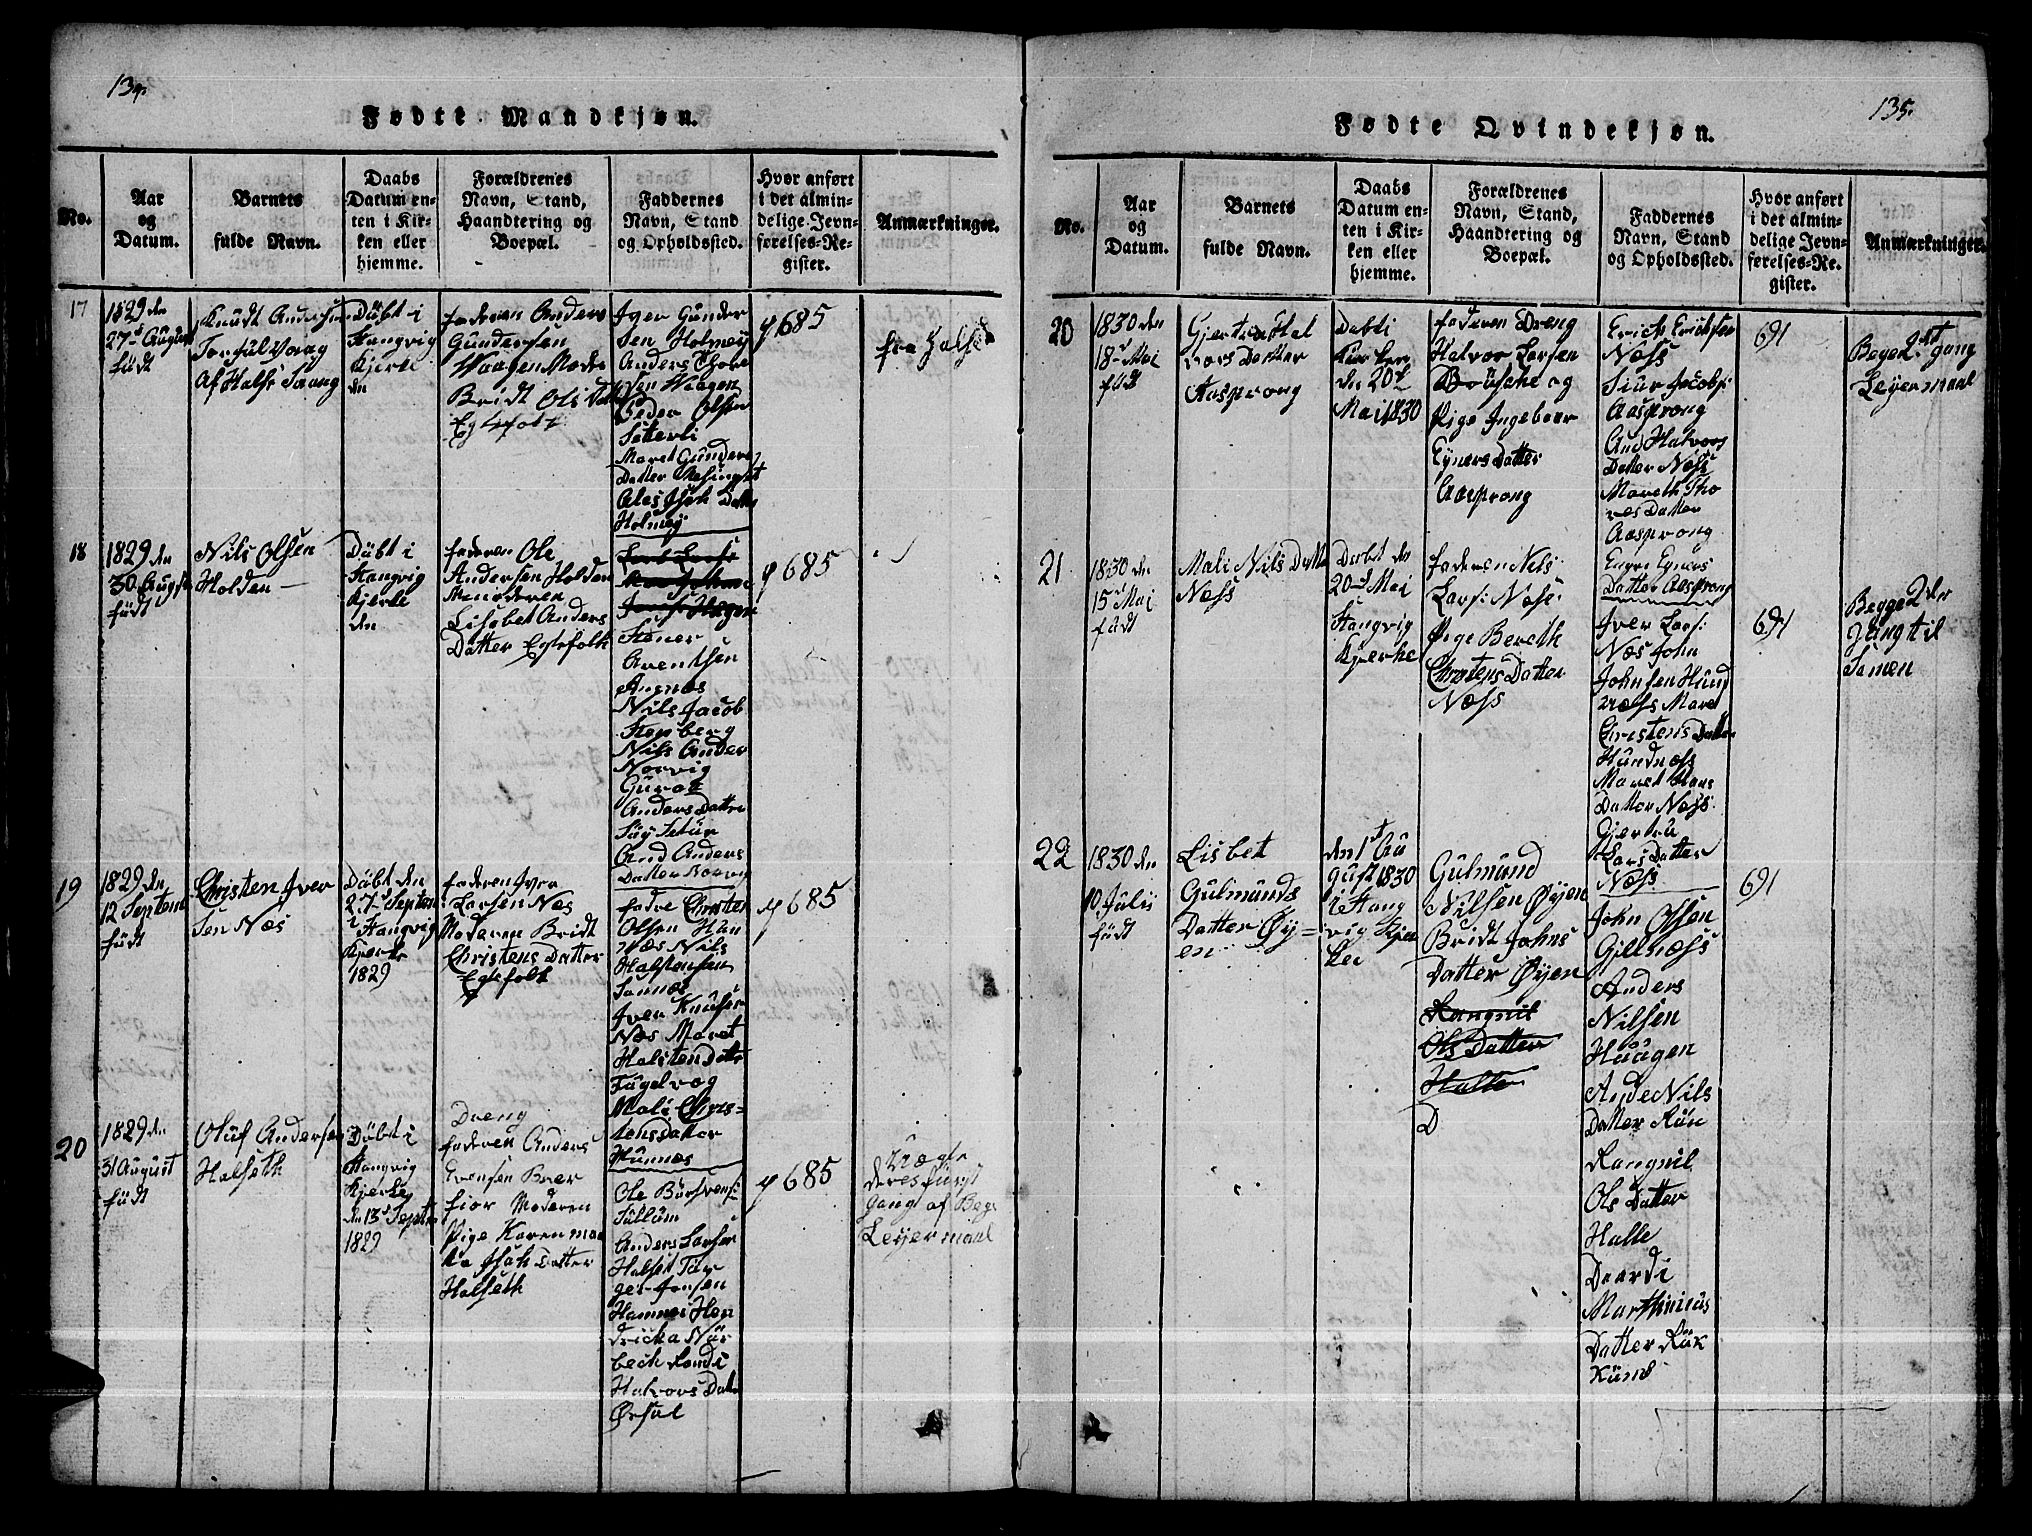 134.
Fødte Mandkjøn.
No.
Aar
og
Datum.
Barnets
fulde Navn.
Daabs
Datum en-
ten i Kir-
ken eller
hjemme.
Forældrenes
Navn, Stand,
Haandtering og
Boepæl.
Faddernes
Navn, Stand
og Opholdssted.
Hvor anført
i det almin-
delige Jevn-
førelses-Re-
gister.
Anmærkninger.
17
1829 den
27de August
född
Knudt Andersen
Af Halse
Döbt i
Stangvig
Kjerke
den
faderen Anders
Gundersen
Waagen Mode
Bridt Ols Datt
Egtefolk
Iver Gunder
sen Holmeÿ
Anders Thore
sen Waagen
Peder Olsen
Setterli
Maret Gunders
Datter
Ales Isak Datter
Holmeÿ
685
fra Halse
18
1829 den
30 August
född
Nils Olsen
Holden
Döbt i
Stangvig
Kjerke
den
faderen Ole
Andersen Holden
Moderen
Lisebet Anders
Datter Egtefolk
Stener
Arentsen
Angnæs
Nils Jacob
Stenberg
Nils Ander
Norvig
Guroe
Anders Datter
And Anders
Datter Norvig
685
19
1829 den
12 Septem
född
Christen Iver
Sen Næs
Döbt den
27 Septem
i Stangvig
Kjerke
1829
faderen Iver
Larsen Næs
Moderen Bridt
Christens Datter
Egtefolk
Christen
Olsen Han
næs Nils
Halstensen
Sannæs
Iver Knudsen
Næs Maret
Halsten Datter
Fugelvog
Mali Chris=
tensdatter
Hunnæs
685
20
1829 den
31 August
född
Oluf Andersen
Halseth
Döbt i
Stangvig
Kjerke
den 13 Septr
1829
Dreng
faderen Anders
Evensen Bver
fior Moderen
Pige Karen Mar
ta Isak Datter
Halseth
Ole
Anders Larsen
Halset Tor
ger Jonsen
Hammer Hen
dricka Nür
beck Randi
Halvors Datter
Ørsal
685
deres först
Gang af Beg
Leyermaal
135.
Fødte Qvindekjøn.
No.
Aar
og
Datum.
Barnets
fulde Navn.
Daabs
Datum en-
ten i Kir-
ken eller
hjemme.
Forældrenes
Navn, Stand,
Haandtering og
Boepæl.
Faddernes
Navn, Stand
og Opholdssted.
Hvor anført
i det almin-
delige Jevn-
førelses-Re-
gister.
Anmærkninger.
20
1830 den
18de Mai
föd
Gjertru Hal
vors Datter
Aasprong
Dobt i
den 20de
Mai 1830
faderen Dreng
Halvor Larsen
Bøüsche og
Pige Ingebaar
Eÿners Datter
Aasprong
Erich Erichsen
Næss
Siur Jacobs:
Aasprong
And Halvors
Datter Næss
Mareth Tho
res Datter
Aasprong
Engre Egners
Datter Aasprong
691
Begge 1st gang
Leyermaal
21
1830 den
15de Mai
född
Mali Nils Datter
Næss
Dobt den
20de Mai
Stangvig
Kjerke
faderen Nils
Lars: Næss:
Pige Bereth
Christens Datter
Næss
Iver Lars:
Næs John
Johnsen Hund
næss Maret
Christens Datter
Hundnæss
Maret Hans
Datter Næss
Gjertru
Lars Datter
Næss
691
Begge 2den
Gang til
Samen
22
1830 den
10 Julii
född
Lisbet
Gulmunds
Datter Øy=
en
den 1st Au
gust 1830
i Stang
vig Kjer
ke
Gulmund
Nilsen Øyen
Bridt Johns
Datter Øyen
Rangnil
Ols Datter
Halle
D
John Olsen
Gillnæss
Anders
Nilsen
Haugen
Ande Nils
Datter Røn
Rangnil
Ols Datter
Halle
Daardi
Marthinius
Datter Røk
Küm
691